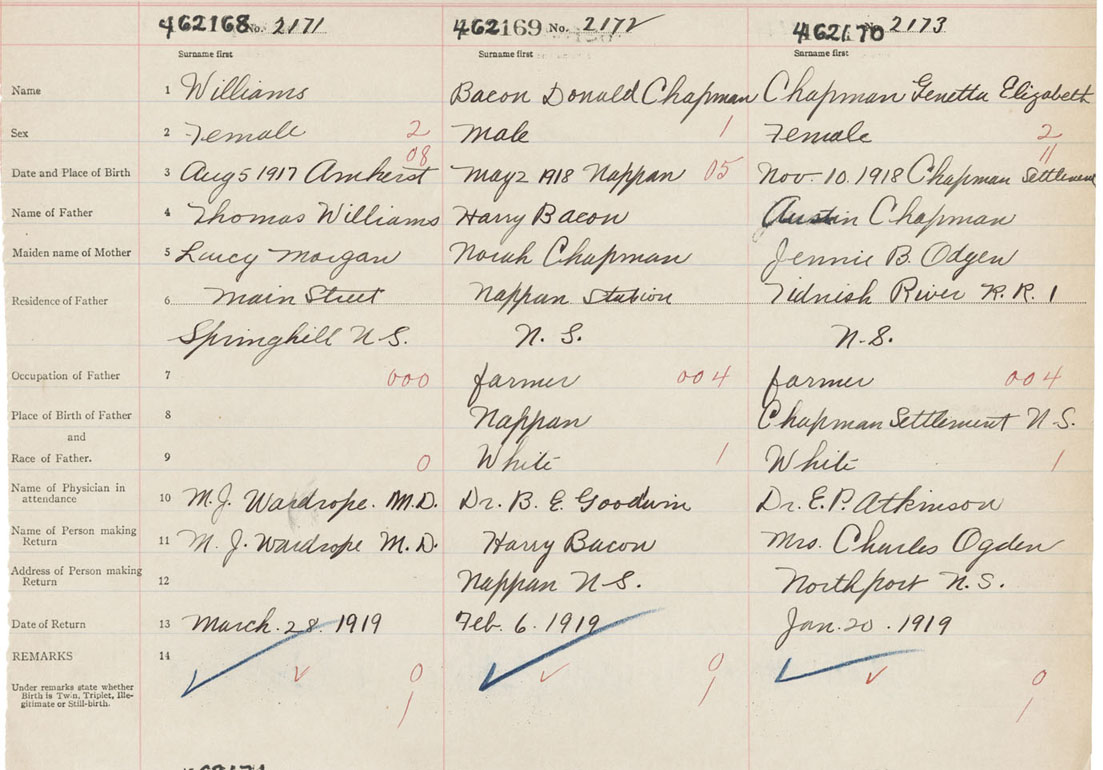 462168 No. 2171 462169 No. 2172 462170 No. 2173
Surname first Surname first Surname first
Name 1 Williams Bacon Donald Chapman Chapman Genetta Elizabeth
Sex 2 Female 2 Male 1 Female 2
08 11
Date and Place of Birth 3 Aug 5 1917 Amherst May 2 1918 Nappan 05 Nov. 10. 1918 Chapman Settlement
Name of Father 4 Thomas Williams Harry Bacon Austin Chapman
Maiden name of Mother 5 Lucy Morgan Norah Chapman Jennie B. Odgen
Residence of Father 6 Main Street Nappan Station Tidnish River R. R. 1
Springhill N.S. N. S. N.S.
Occupation of Father 7 000 farmer 004 farmer 004
Place of Birth of Father 8 Nappan Chapman Settlement N.S.
and
Race of Father. 9 0 White 1 White 1
Name of Physician in
attendance 10 M. J. Wardrope. M.D. Dr. B. E. Goodwin Dr. E. P. Atkinson
Name of Person making
Return 11 M. J. Wardrope M.D. Harry Bacon Mrs. Charles Ogden
Address of Person making
Return 12 Nappan N.S. Northport N.S.
Date of Return 13 March. 28. 1919 Feb. 6. 1919 Jan. 20. 1919
REMARKS 14
0 0 0
Under remarks state whether
Birth is Twin, Triplet, Ille-
gitimate or Still-birth.
1 1 1